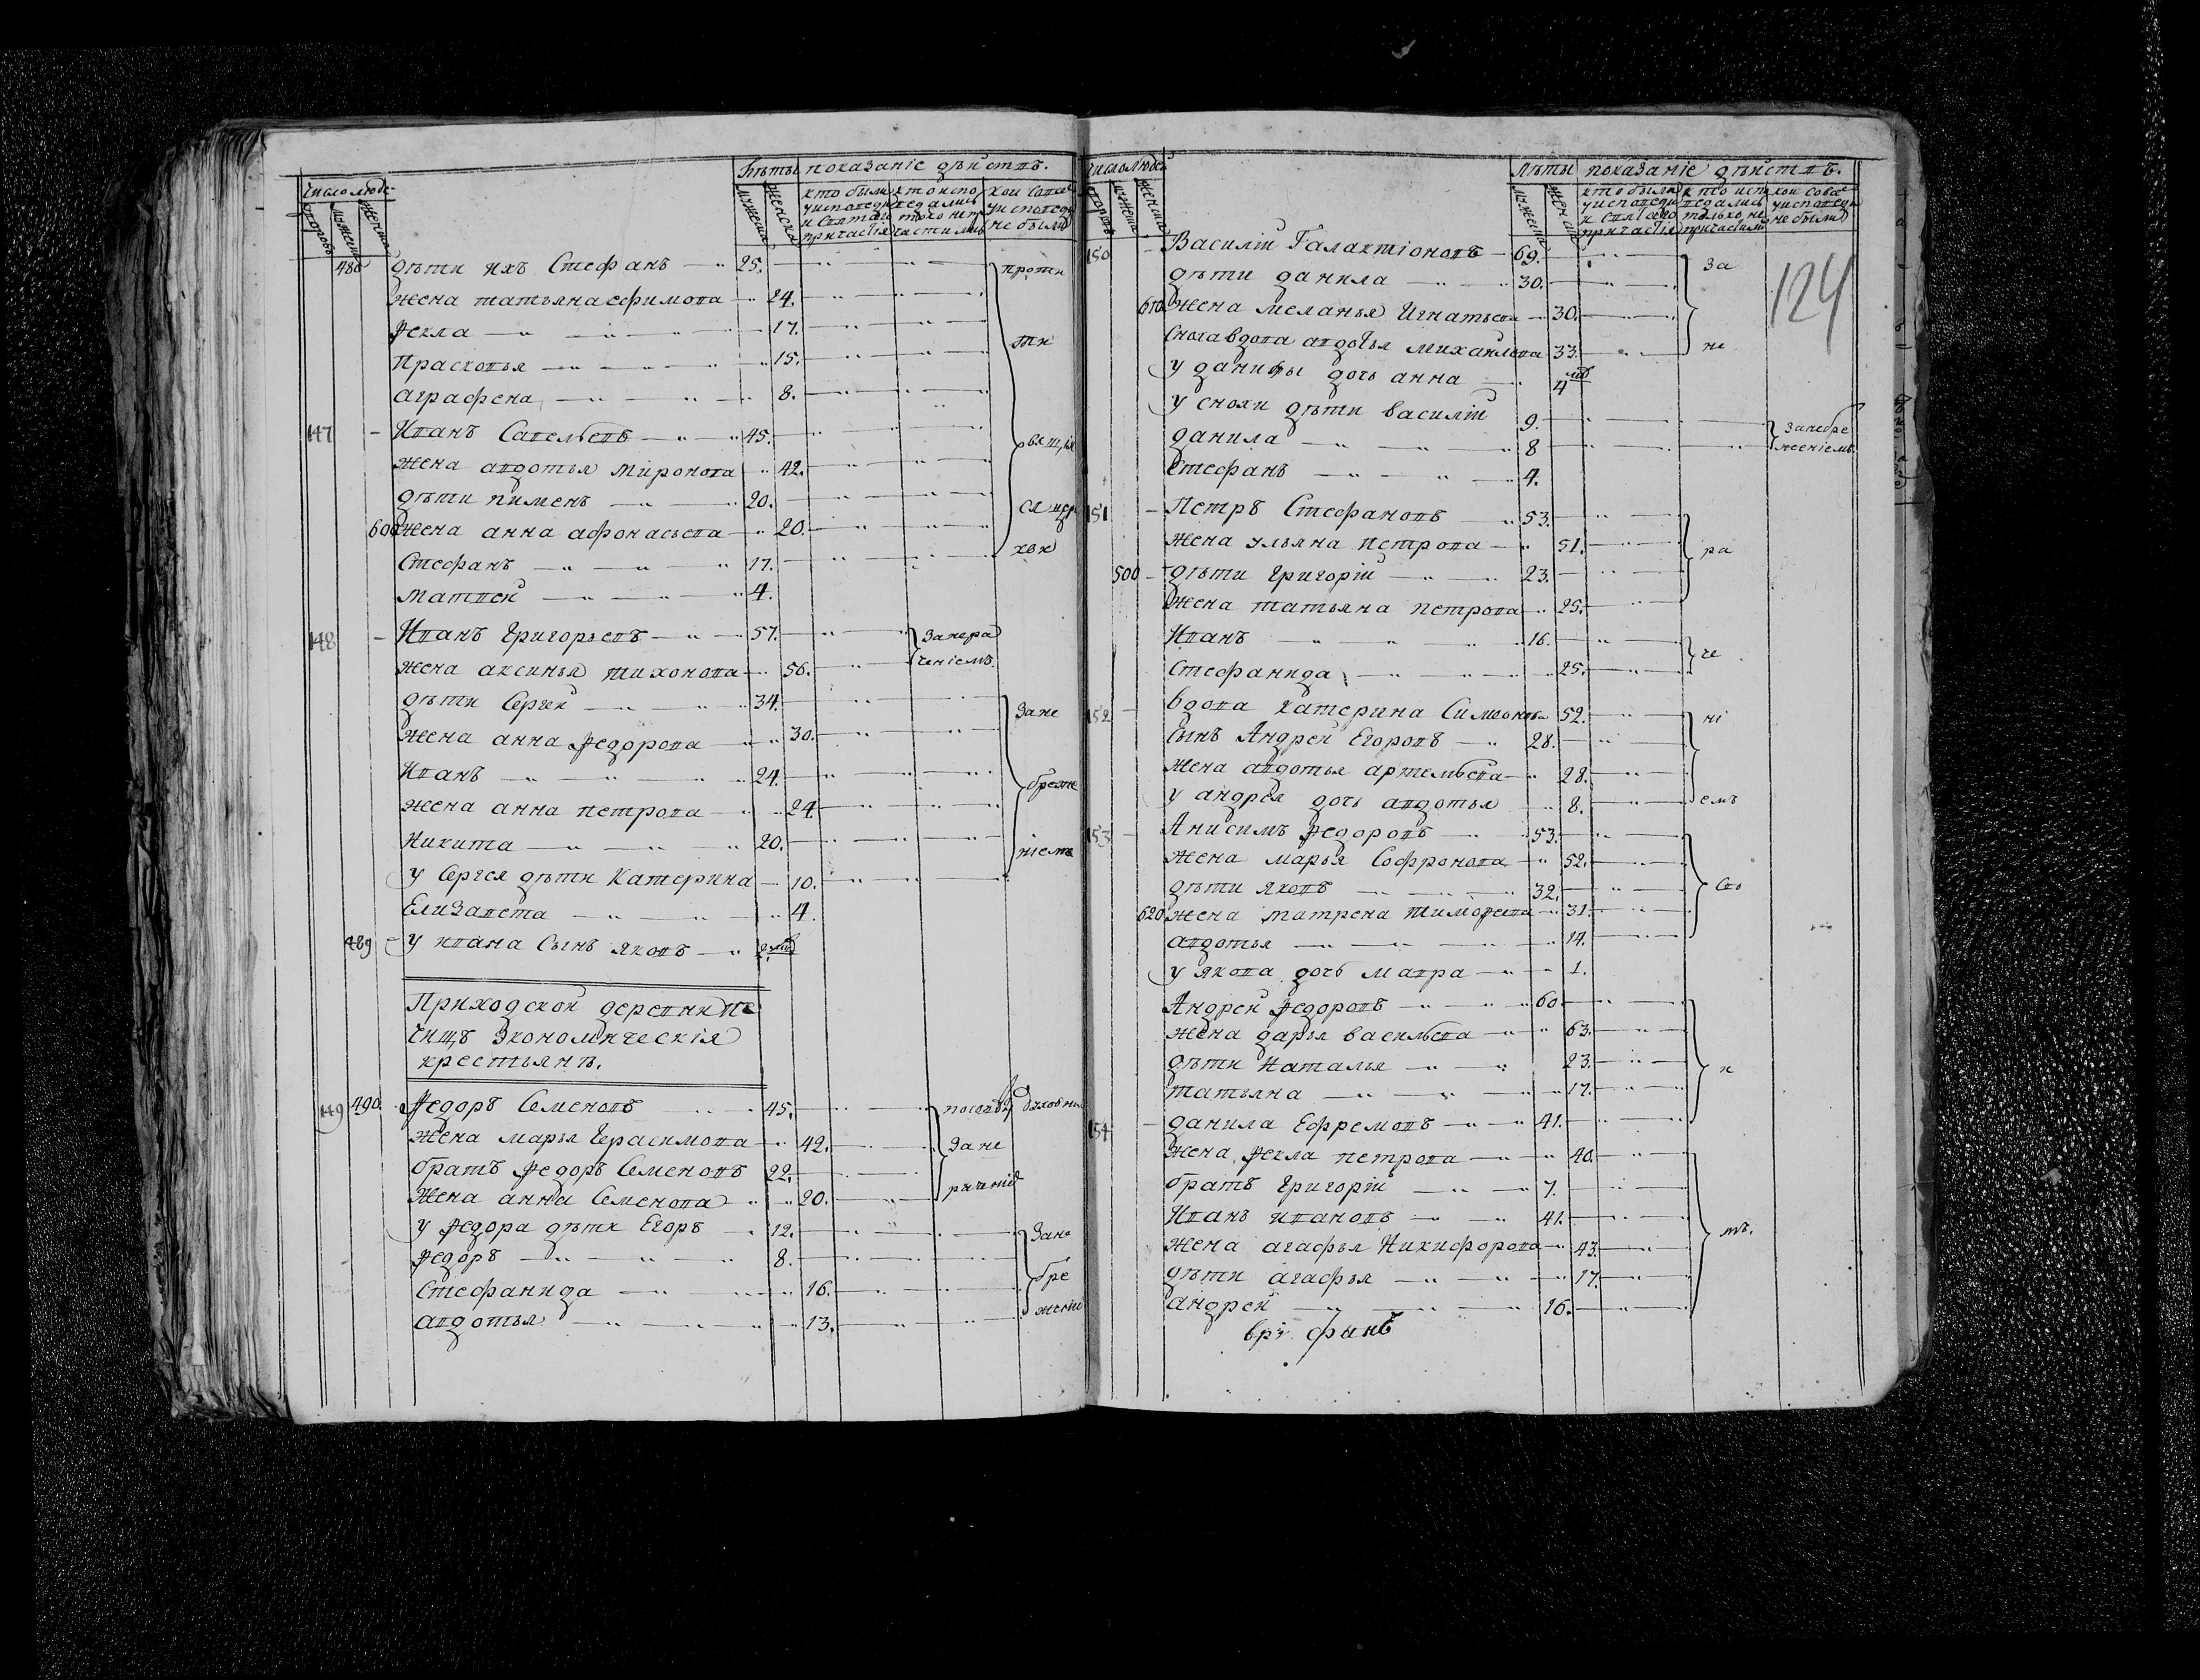 число люде
дворовъ мужеска женска
Лѣты показаніе дѣйствъ.
мужеска женска
кто были у исповеди и святаго причастія
кто испо ведались токо не при частились
кои совсе у исповеди не были
480 дѣти ихъ Стефанъ 25. проти
жена татьяна ефимова 24.
Фекла 17.
Прасковья 15.
аграфена 8.
147 Иванъ Савельевъ 45.
жена авдотья миронова 42.
дѣти пименъ 20.
600 Жена анна афонасьева 20.
Стефанъ 17.
матвей 4.
148 Иванъ Григорьевъ 57.
жена аксинья тихонова 56.
дѣти Сергей 34. Зане
жена анна федорова 30.
Иванъ 24.
жена анна петрова 24. бреже
Никита 20. ніемъ
у Сергея дѣти Катерина 10.
Елизавета 4.
489 у ивана Сынъ яковъ 2
Приходской деревни Пе
чищъ Экономическія
крестьянъ.
149 490 Федоръ Семеновъ 45.
жена марья Герасимова 42. Зане
братъ Федоръ Семеновъ 22.
Жена анна Семенова 20.
у Федора дѣти Егоръ 12. Зане
Федоръ 8.
Стефанида 16. бре
авдотья 13.
число людей
дворовъ мужеска женска
Лѣты показаніе дѣйствъ.
мужеска женска
кто были у исповеди и святаго причастія
кто исп ведались только не причастили
кои совсе у исповеди не были
124
150 Василій Галактіоновъ 69. За
дѣти данила 30.
610 Жена меланья Игнатьева 30.
Сноха вдова авдотья михайлова 33. не
у данилы дочь анна 4
у снохи дѣти василій 9. Занебре
данила 8 женіемъ
Стефанъ 4.
151 Петръ Стефановъ 53.
Жена ульяна петрова 51. ра
500 дѣти григорій 23.
Жена татьяна петрова 25.
Иванъ 16. че
Стефанида 25.
152 вдова катерина Симеонова 52. ні
Сынъ Андрей Егоровъ 28.
Жена авдотья артемьева 28.
у андрея дочь авдотья 8. емъ
153 Анисимъ Федоровъ 53.
Жена марья Софронова 52.
дѣти яковъ 32. Сво
620 жена матрена тимофеева 31.
авдотья 14.
у якова дочь мавра 1.
Андрей Федоровъ 60
жена дарья васильева 63.
дѣти Наталья 23. и
татьяна 17.
154 данила Ефремовъ 41.
Жена Фекла петрова 40.
братъ Григорій 7.
Иванъ ивановъ 41. мъ.
Жена агафья Никифорова 43.
дѣти агафья 17.
андрей 16.